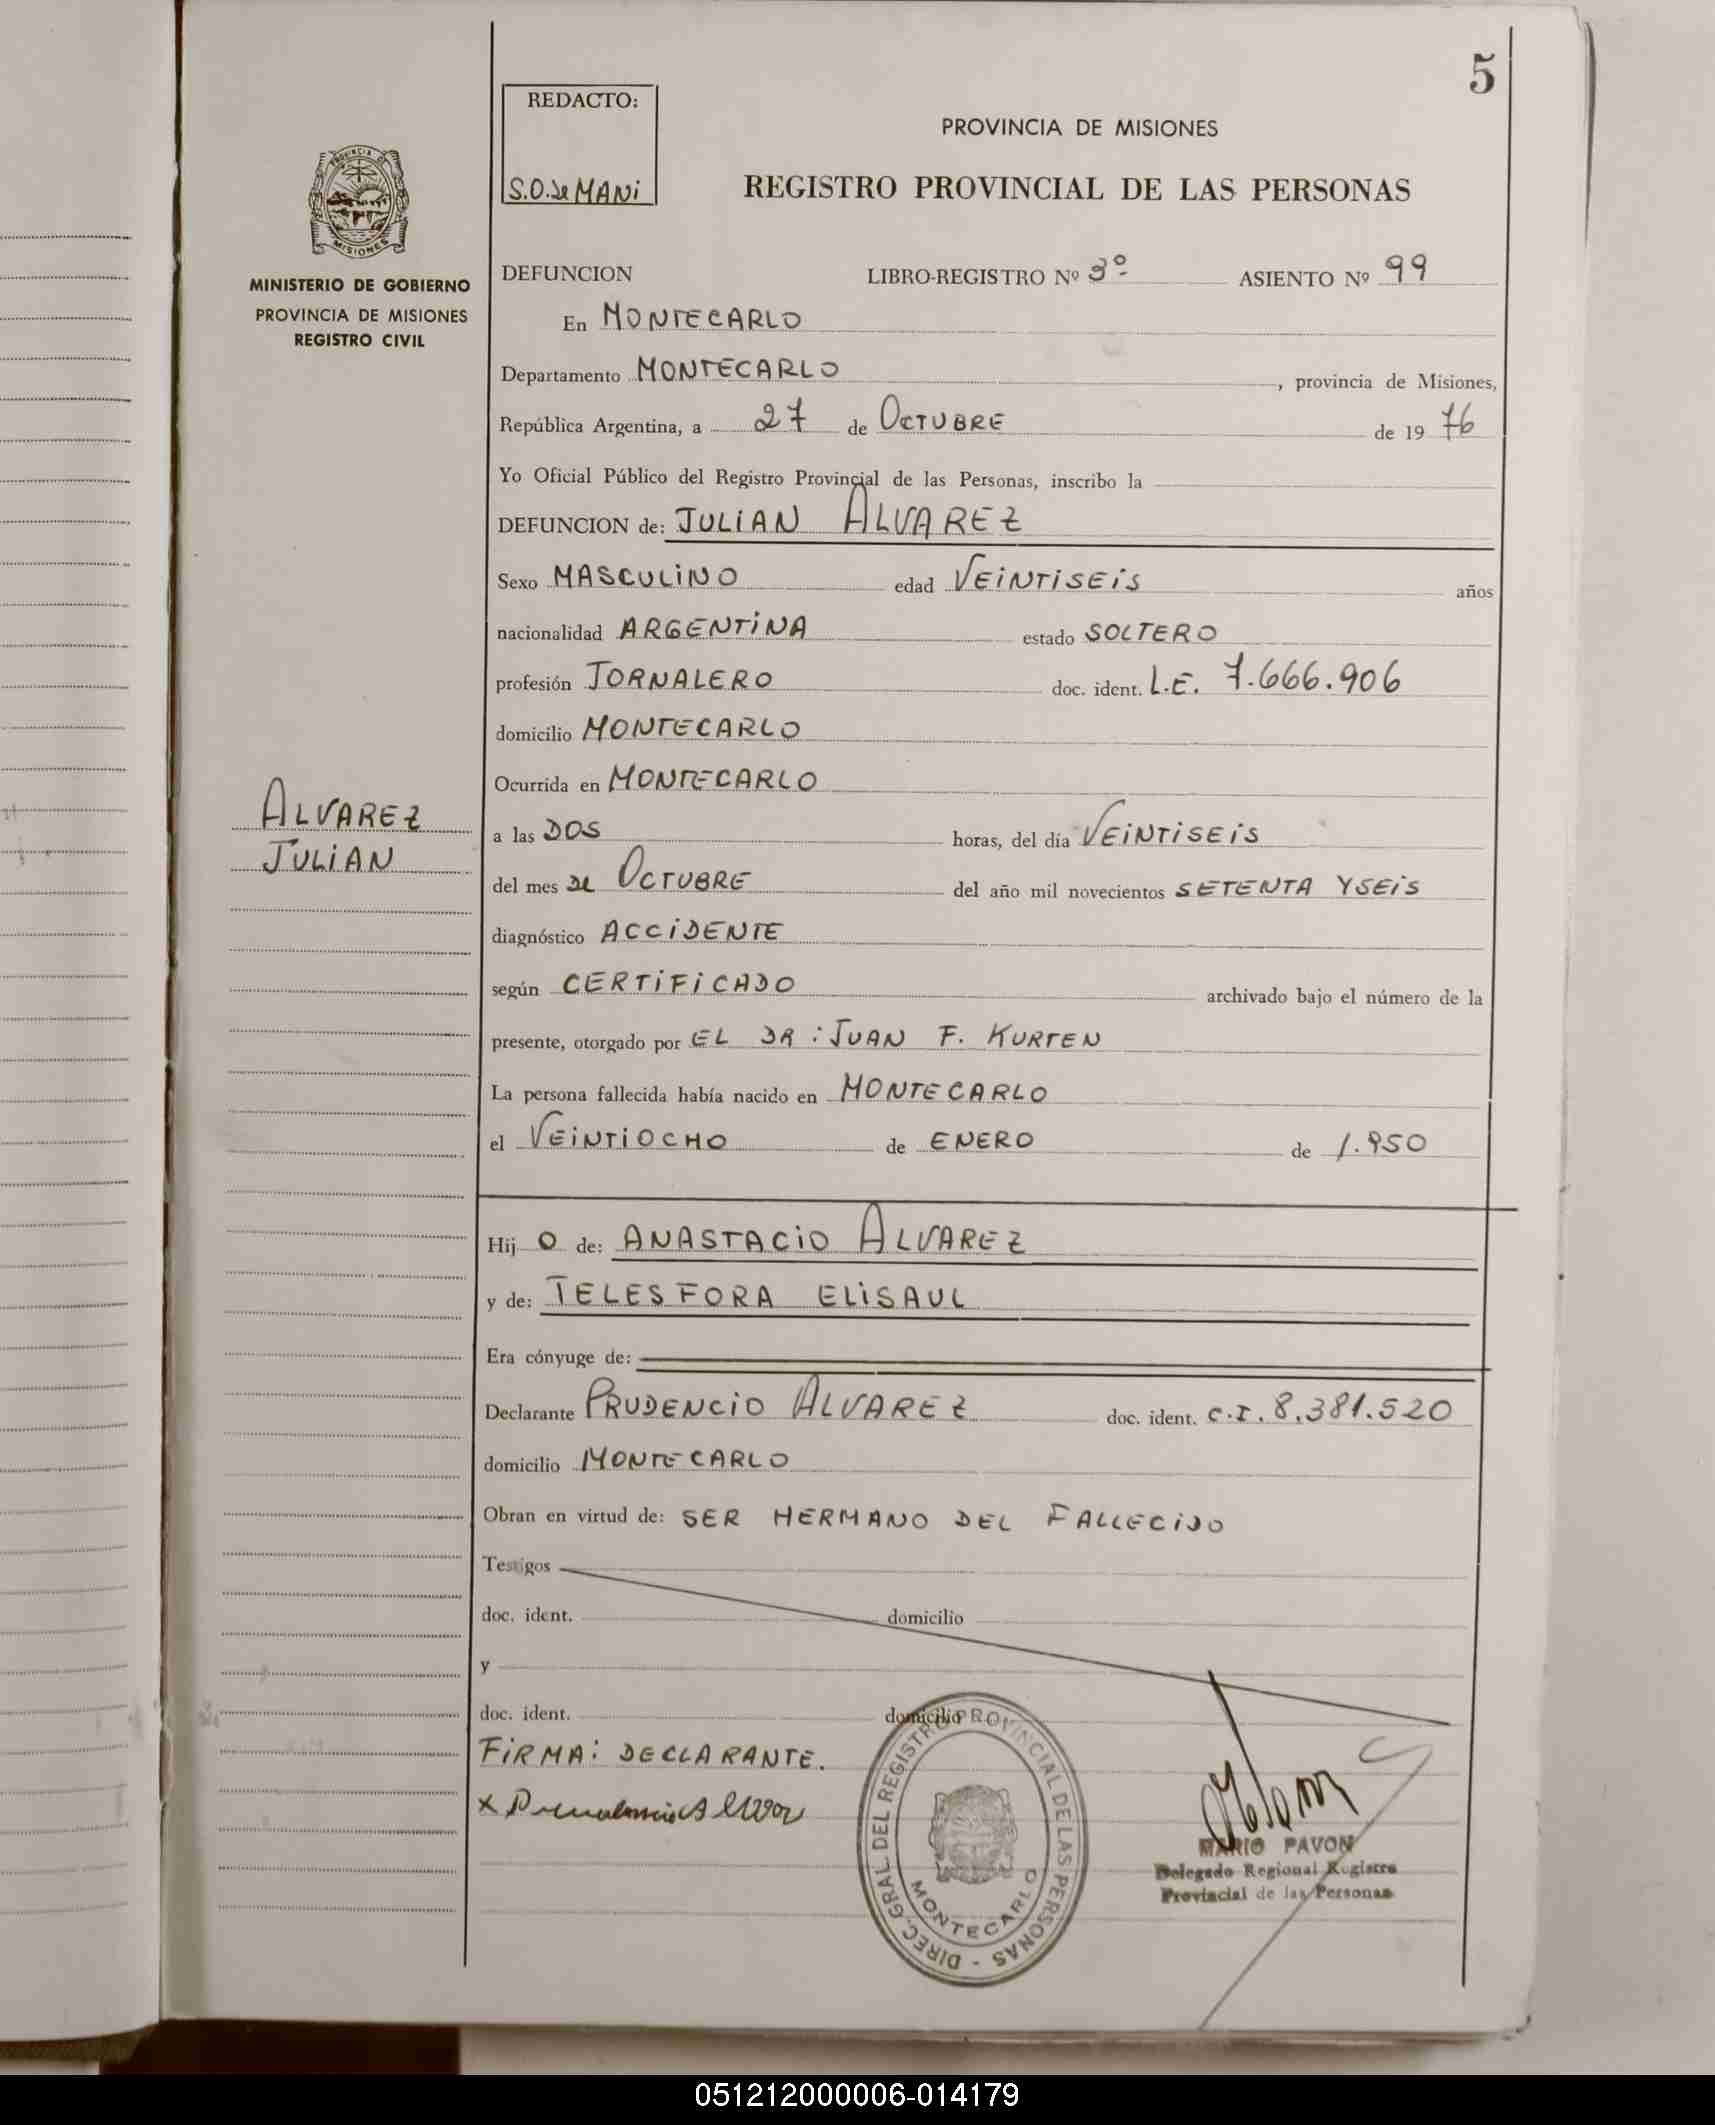 5
REDACTO:
S.O. de MANI
PROVINCIA DE MISIONES
REGISTRO PROVINCIAL DE LAS PERSONAS
PROVINCIA DE
MISIONES
MINISTERIO DE GOBIERNO
PROVINCIA DE MISIONES
REGISTRO CIVIL
DEFUNCION LIBRO-REGISTRO Nº 3º ASIENTO Nº 99
En MONTECARLO
Departamento MONTECARLO, provincia de Misiones,
República Argentina, a 27 de OCTUBRE de 1976
Yo Oficial Público del Registro Provincial de las Personas, inscribo la
DEFUNCION de: JULIAN ALVAREZ
Sexo MASCULINO edad VEINTISEIS años
nacionalidad ARGENTINA estado SOLTERO
profesión JORNALERO doc. ident. L.E. 7.666.906
domicilio MONTECARLO
Ocurrida en MONTECARLO
ALVAREZ
JULIAN
a las DOS horas, del día VEINTISEIS
del mes de OCTUBRE del año mil novecientos SETENTA Y SEIS
diagnóstico ACCIDENTE
según CERTIFICADO archivado bajo el número de la
presente, otorgado por EL DR: JUAN F. KURTEN
La persona fallecida había nacido en MONTECARLO
el VEINTIOCHO de ENERO de 1.950
Hij O de: ANASTACIO ALVAREZ
y de: TELESFORA ELISAUL
Era cónyuge de:
Declarante PRUDENCIO ALVAREZ doc. ident. C.I. 8.381.520
domicilio MONTECARLO
Obran en virtud de: SER HERMANO DEL FALLECIDO
Testigos
doc. ident. domicilio
y
doc. ident. domicilio
FIRMA: DECLARANTE.
x Prudencio Alvarez
DIREC. GRAL DEL REGISTRO PROVINCIAL DE LAS PERSONAS -
MONTECARLO
MARIO PAVON
Delegado Regional Registro
Provincial de las Personas
051212000006-014179